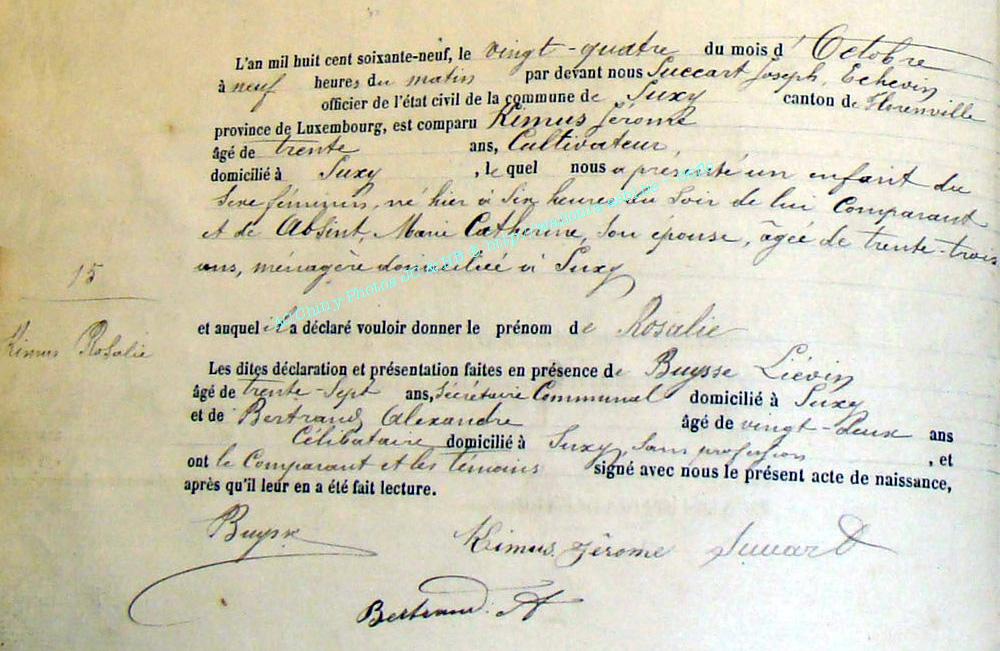 L'an mil huit cent soixante-neuf, le vingt-quatre du mois d'Octobre
à neuf heures du matin par devant nous Succart Joseph, Echevin
officier de l'état civil de la commune de Suxy canton de Florenville
province de Luxembourg, est comparu Kimus Jérome
âgé de trente ans, Cultivateur,
domicilié à Suxy, le quel nous a présenté un enfant du
Sexe féminin, né hier à Six heures du Soir de lui Comparant
et de Absint, Marie Catherine, Son epouse, âgée de trente-trois
ans, ménagère domiciliée à Suxy
15
et auquel il a déclaré vouloir donner le prénom de Rosalie
Kimus Rosalie
Les dites déclaration et présentation faites en présence de Buysse Liévin
âgé de trente-Sept ans, Sécrétaire Communal domicilié à Suxy
et de Bertrand Alexandre âgé de vingt-deux ans
Célibataire domicilié à Suxy, Sans profession, et
ont le Comparant et les témoins signé avec nous le présent acte de naissance,
après qu'il leur en a été fait lecture.
Buysse Kimus Jérome Succart
Bertrand. A
Chiny Photos JC & HB